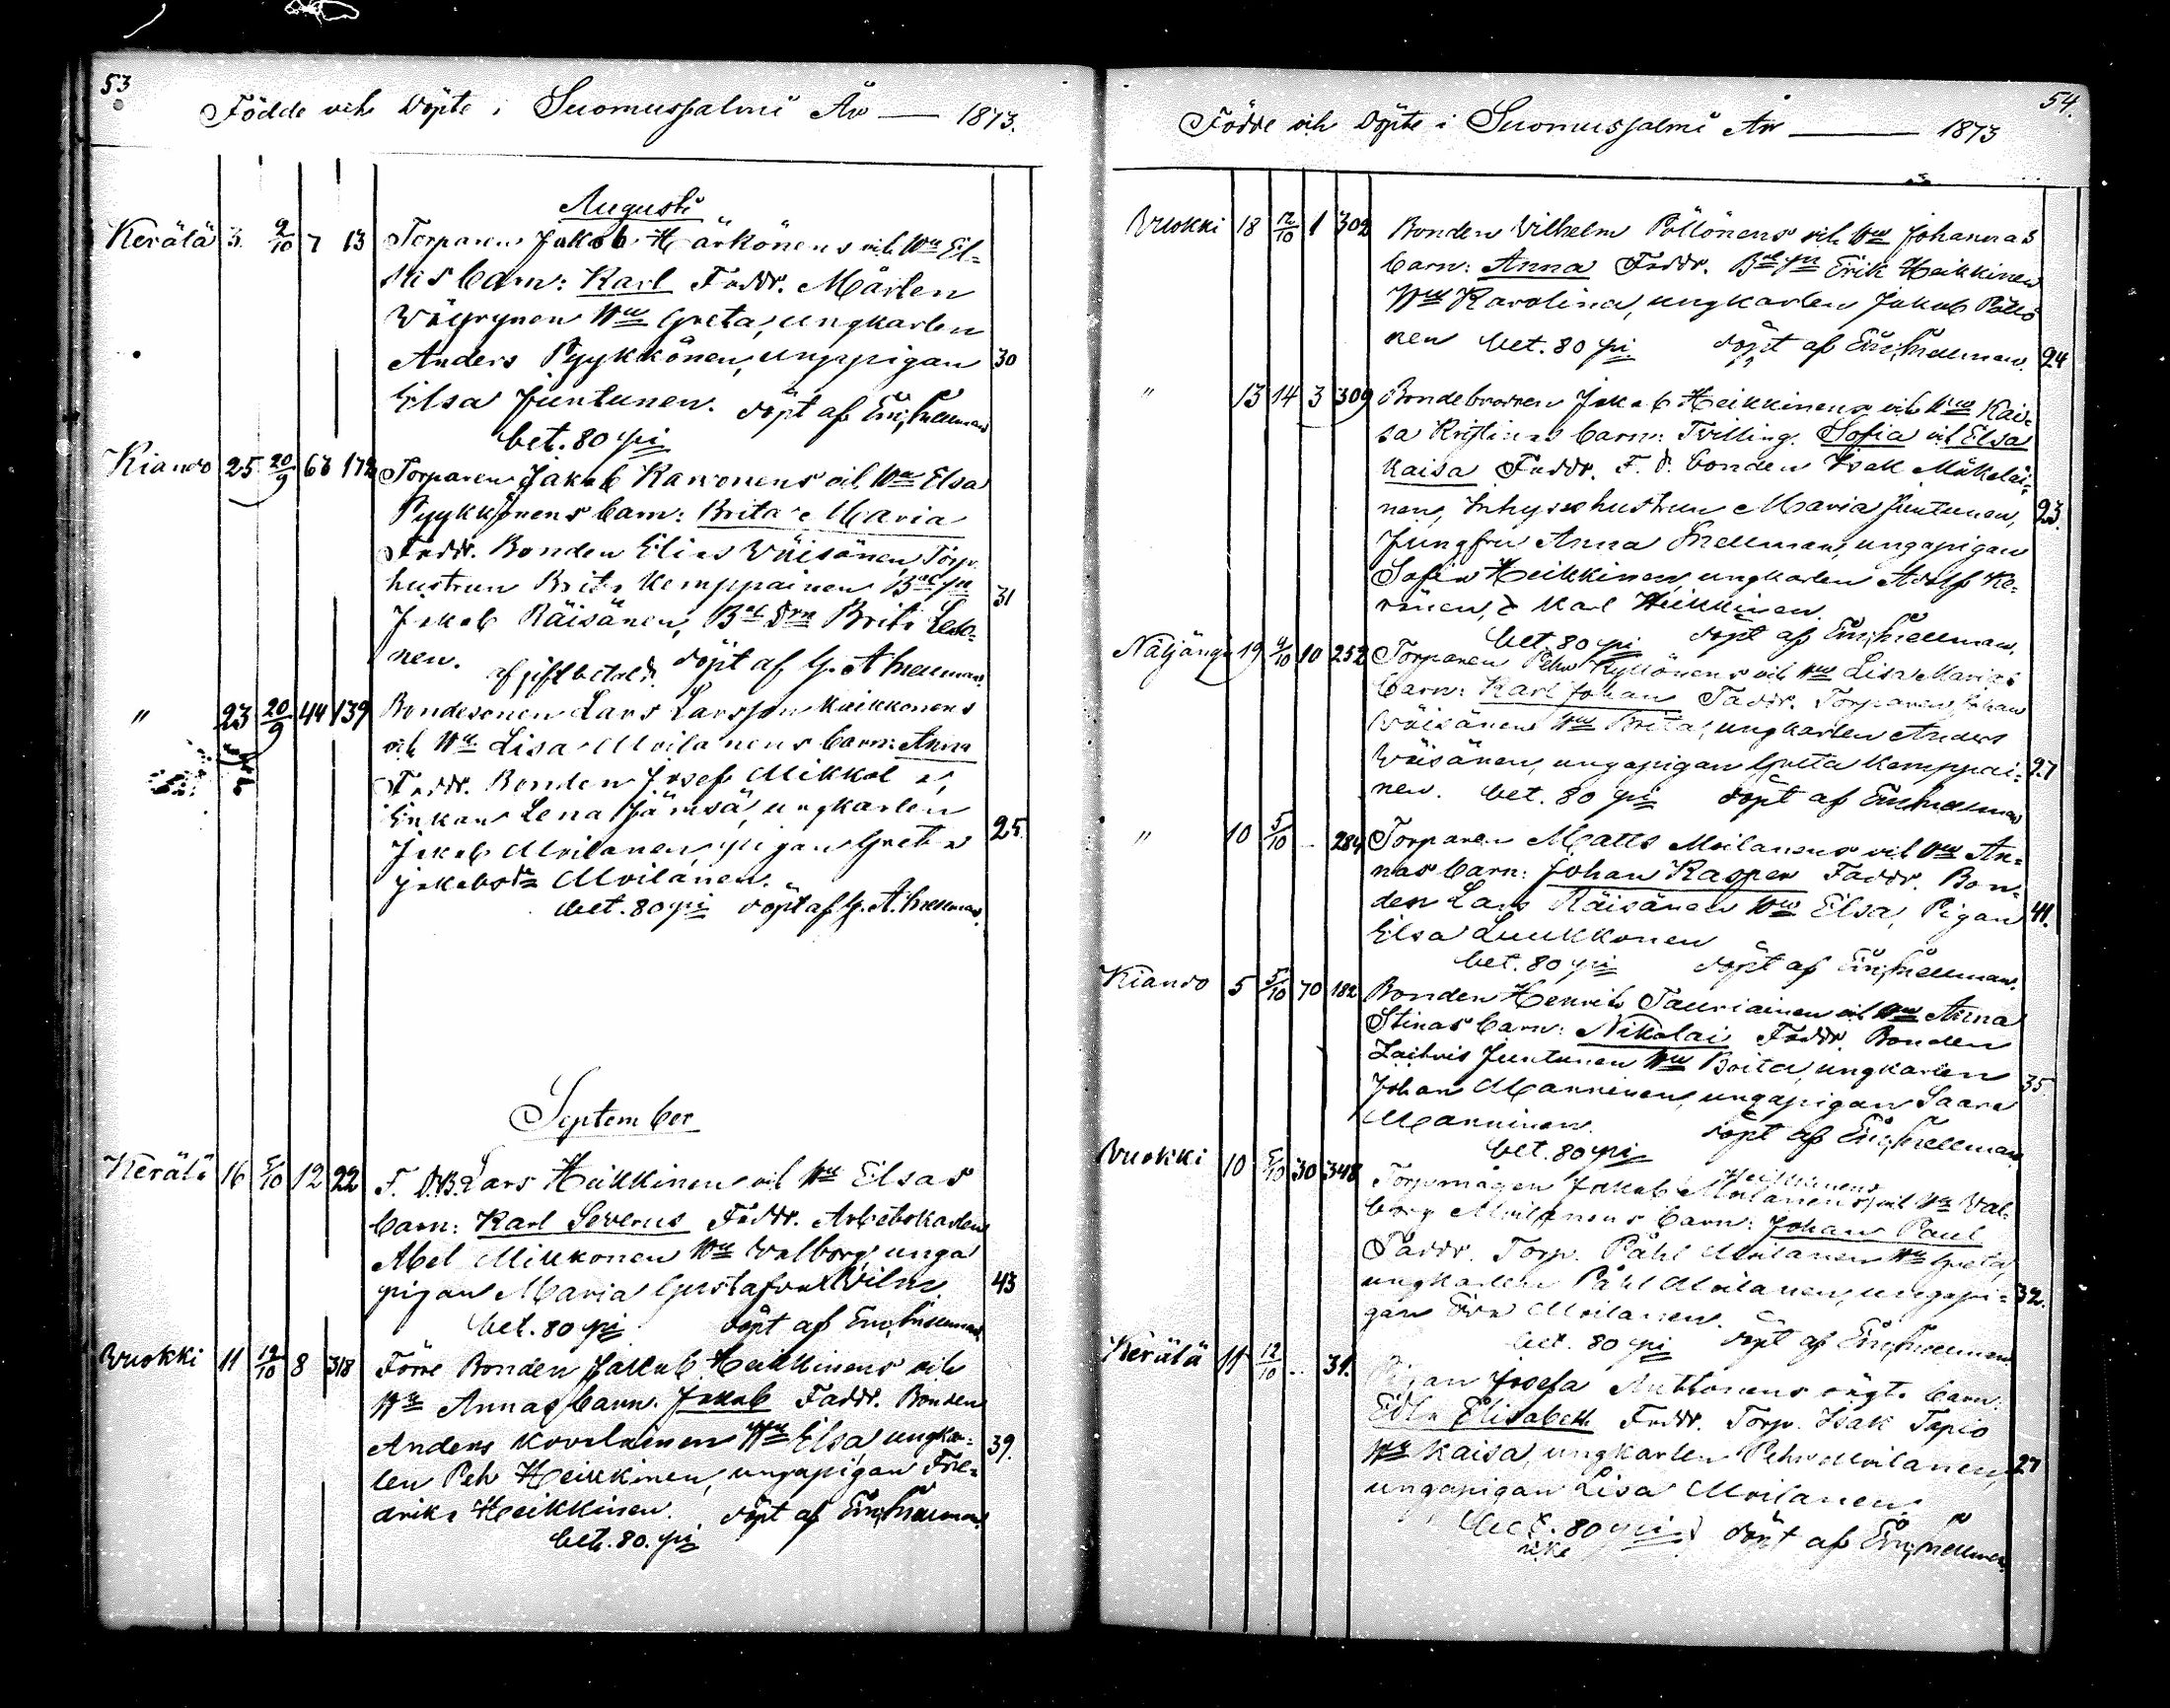 53
Födde och Döpte i Suomussalmi År — 1873.
Augusti
Kerälä 3. 9/10 7 13 Torparen Jakob Härkönens och Hu El-
sas barn: Karl Faddr. Mårten
Wäyrynen Hu Greta, ungkarlen
Anders Pyykkönen, ungapigan 30
Elsa Juntunen. döpt af Em. Snellman
bet. 80 pi
Kiando 25 20/9 67 172 Torparen Jakob Karvonens och Hu Elsa
Pyykkönens barn: Brita Maria
Faddr. Bonden Elias Wäisänen Torp.
hustrun Brita Kemppainen, Bdesn 31
Jakob Räisänen, Bde Drn Brita Lesk-
nen. döpt af G. A. Snellman.
" 23 20/9 44 139 Bondesonen Lars Larsson Kaikkonens
och Hu Lisa Moilanens barn: Anna
Faddr. Bonden Josef Mikkola,
Enkan Lena Jämsä, ungkarlen
Jakob Moilanen, pigan Greta 25.
Jakobsdr Moilanen.
bet. 80 pi döpt af G. A. Snellman.
September
Kerälä 16 5/10 12 22 F. D. B. Lars Heikkinen och Hu Elsas
barn: Karl Severus Faddr. Arbetskarlen
Abel Mikkonen Hu Walborg, unga
pigan Maria Gustafva Wilm. 43
bet. 80 pi döpt af Em. Snellman
Wuokki 11 12/10 8 318 Förre Bonden Jakob Heikkinens och
Hu Annas barn. Jakob Faddr. Bonden
Anders Kovalainen Hu Elsa, ungkar- 39.
len Pehr Heikkinen, ungapigan Fre-
drika Heikkinen. döpt af Em. Snellman.
bet. 80. pi
54.
Födde och Döpte i Suomussalmi År — 1873
Wuokki 18 12/10 1 302 Bonden Wilhelm Pöllönens och Hu Johannas
barn: Anna Faddr. Bdesn Erik Heikkinen
Hu Karolina, ungkarlen Jakob Pöllö
nen bet. 80 pi döpt af Em. Snellman. 24
" 13 14 3 309 Bondebroren Jakob Heikkinens och Hu Kai-
sa Kristinas barn: Tvilling. Sofia och Elsa
Kaisa Faddr. F. d. bonden Isak Mäkeläi-
nen, Inhyses hustrun Maria Juntunen, 23.
Jungfru Anna Snellman, ungapigan
Sofia Heikkinen, ungkarlen Adolf Ke-
ränen, & Karl Heikkinen.
bet. 80 pi döpt af Em. Snellman.
Näljängä 19 4/10 10 252 Torparen Pehr Kyllönens och Hu Lisa Marias
barn: Karl Johan Faddr. Torparen Johan
Wäisänen Hu Brita, ungkarlen Anders
Wäisänen, ungapigan Greta Kemppai- 27
nen. bet. 80 pi döpt af Em. Snellman
" 10 5/10 284 Torparen Matts Moilanens och Hu An-
nas barn: Johan Kasper Faddr. Bon-
den Lars Räisänen Hu Elsa, Pigan 41.
Elsa Luukkonen
bet. 80 pi döpt af Em. Snellman.
Kiando 5 5/10 70 182 Bonden Henrik Tauriainen och Hu Anna
Stinas barn: Nikolai Faddr. Bonden
Juntunen Hu Brita, ungkarlen
Johan Manninen, ungapigan Saara 35.
Manninen. döpt af Em. Snellman
bet. 80 pi
Wuokki 10 5/10 30 348 Torpmågen Jakob Moilanens Heikkinens och Hu Wal-
borg Moilanens barn: Johan Paul
Faddr. Torp. Påhl Moilanen Hu Greta,
ungkarlen Påhl Moilanen, ungapi- 32.
gan Eva Moilanen.
bet. 80 pi döpt af Em. Snellman.
Kerälä 11 12/10 31. Pigan Josefa Anttonens oägta barn:
Edla Elisabeth Faddr. Torp. Isak Tapio
Hu Kaisa, ungkarlen Pehr Moilanen, 27
ungapigan Lisa Moilanen.
bet. 80 pi döpt af Em. Snellman.
icke